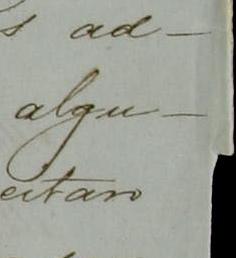 s ad-
algu-
eitaro